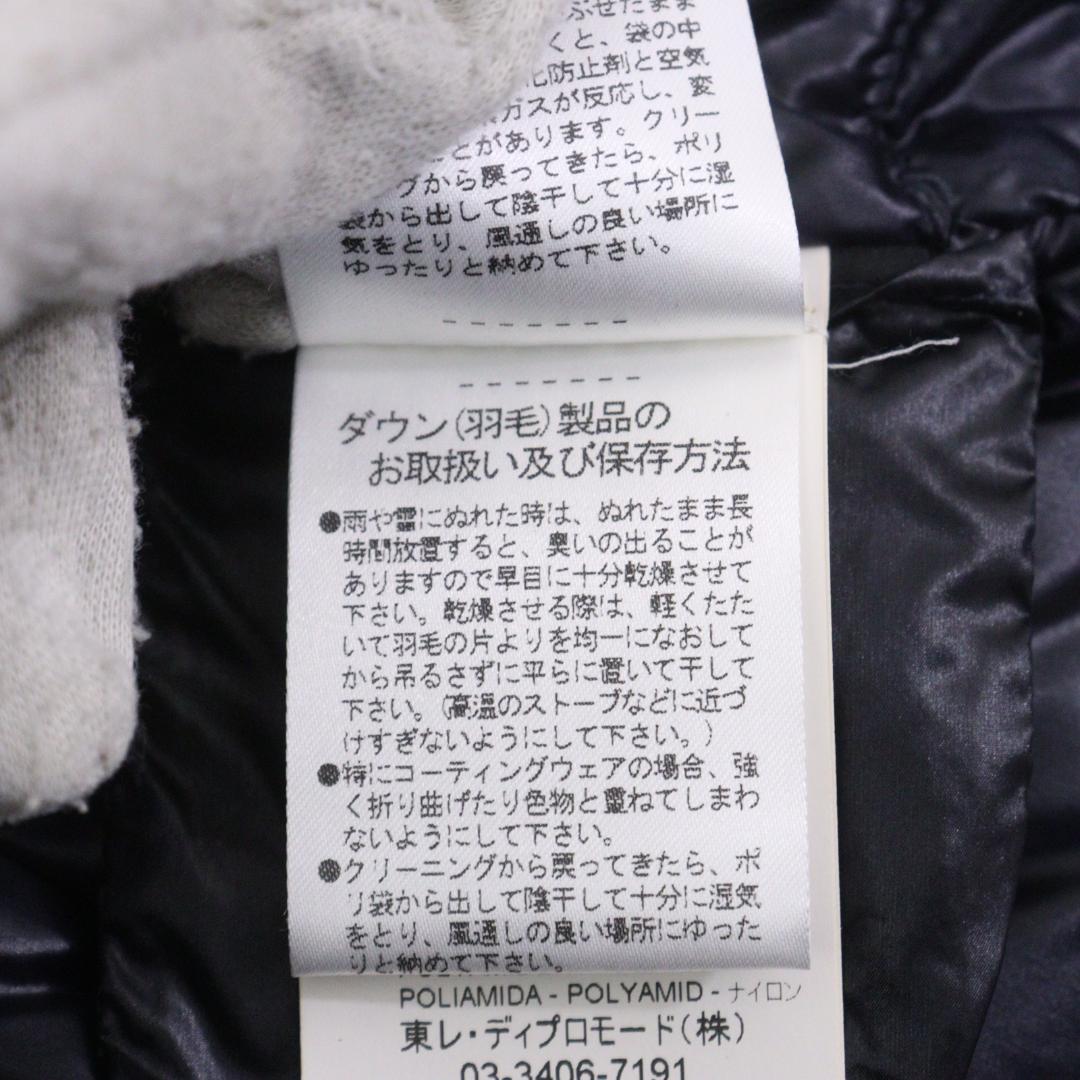 ぶせたまま
くと、袋の中
化防止剤と空気
ガスが反応し、変
とがあります。クリー
グから戻ってきたら、ポリ
袋から出して陰干して十分に湿
気をとり、風通しの良い場所に
ゆったりと納めて下さい。
ダウン(羽毛)製品の
お取扱い及び保存方法
●雨や雪にぬれた時は、ぬれたまま長
時間放置すると、臭いの出ることが
ありますので早目に十分乾燥させて
下さい。乾燥させる際は、軽くたた
いて羽毛の片よりを均一になおして
から吊るさずに平らに置いて干して
下さい。(高温のストーブなどに近づ
けすぎないようにして下さい。)
●特にコーティングウェアの場合、強
く折り曲げたり色物と重ねてしまわ
ないようにして下さい。
●クリーニングから戻ってきたら、ポ
リ袋から出して陰干して十分に湿気
をとり、風通しの良い場所にゆった
りと納めて下さい。
POLIAMIDA - POLYAMID - ナイロン
東レ・ディプロモード(株)
03-3406-7191